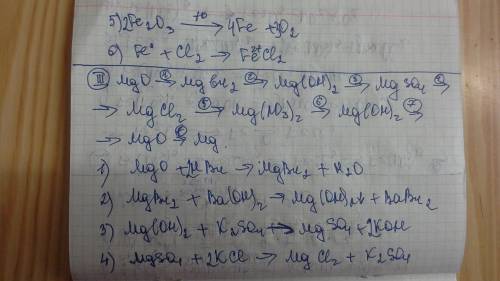 5) 2Fe₂O₃ —t°→ 4Fe + 3O₂
6) Fe⁰ + Cl₂ → Fe²⁺Cl₂
III MgO →① MgBr₂ →② Mg(OH)₂ →③ MgSO₄ →④
→ MgCl₂ →⑤ Mg(NO₃)₂ →⑥ Mg(OH)₂ →⑦
→ MgO →⑧ Mg.
1) MgO + 2HBr → MgBr₂ + H₂O
2) MgBr₂ + Ba(OH)₂ → Mg(OH)₂↓ + BaBr₂
3) Mg(OH)₂ + K₂SO₄ → MgSO₄ + 2KOH
4) MgSO₄ + 2KCl → MgCl₂ + K₂SO₄